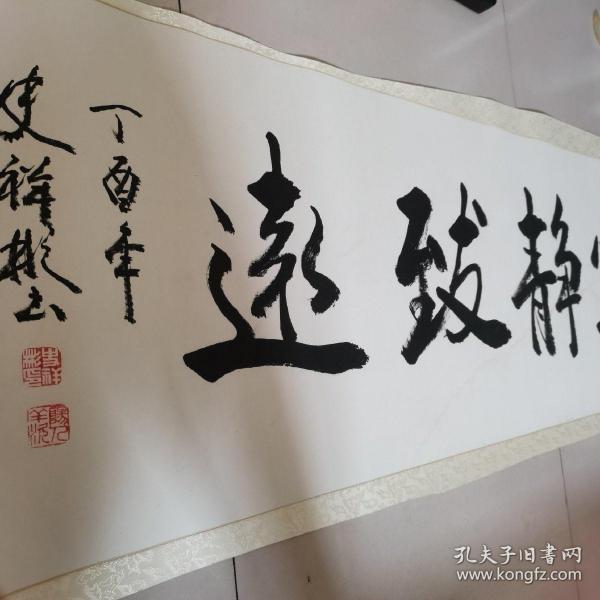 静致遠
丁酉年
史祥彬书
孔夫子旧书网
www.kongfz.com